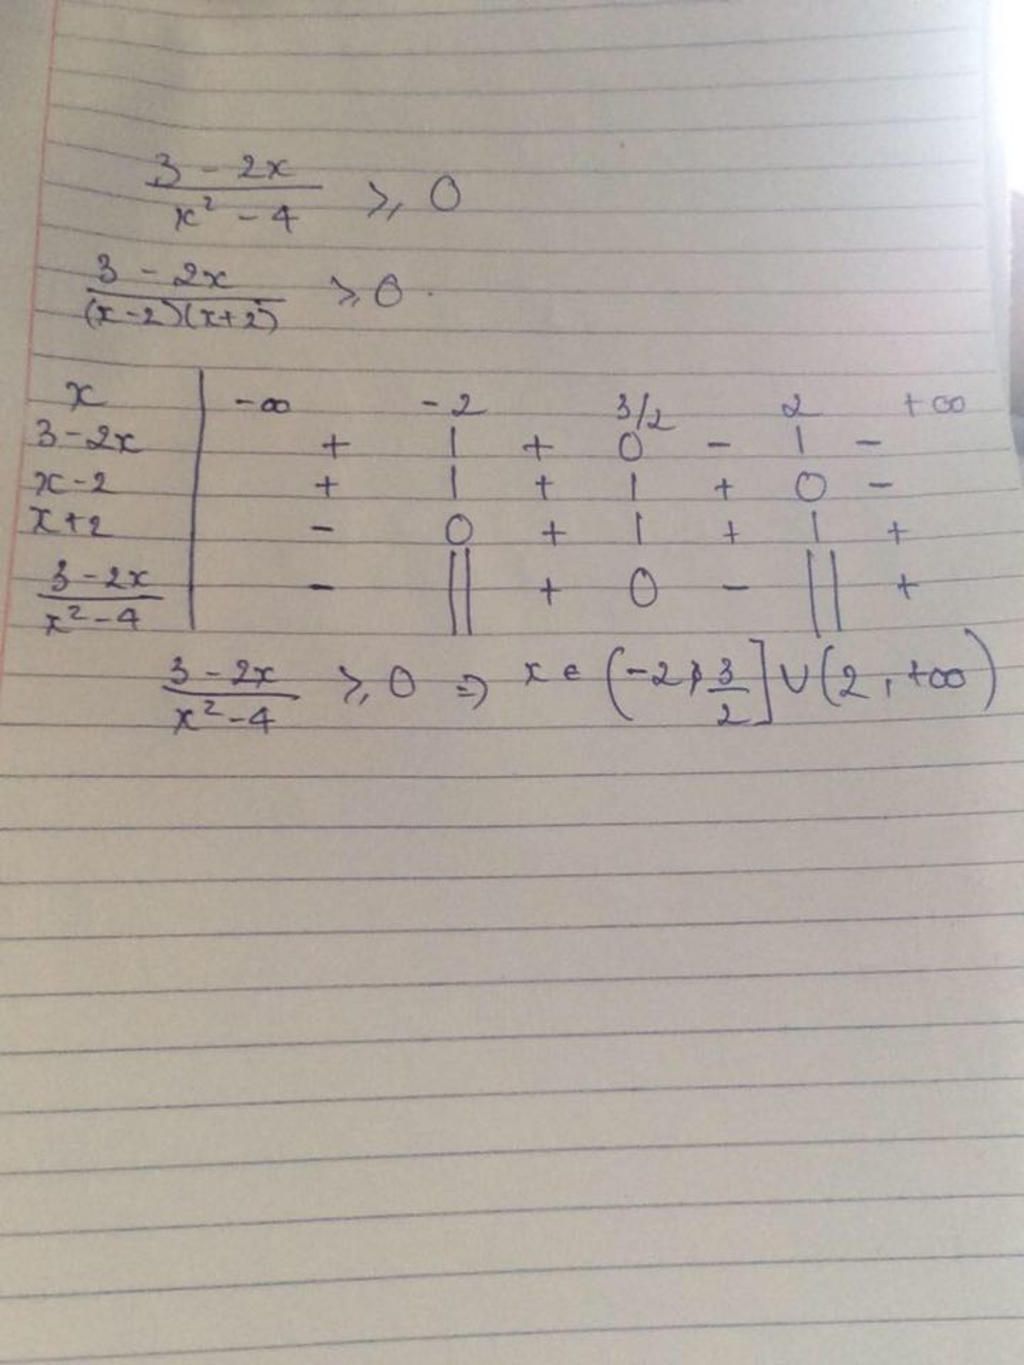 3 - 2x / x² - 4 ⩾ 0
3 - 2x / (x-2)(x+2) ⩾ 0.
x | -∞ -2 3/2 2 +∞
3-2x | + | + 0 - | -
x-2 | + | + | + 0 -
x+2 | - 0 + | + | +
3-2x / x²-4 | - || + 0 - || +
3-2x / x²-4 ⩾ 0 ⇒ x ∈ (-2, 3/2] ∪ (2, +∞)